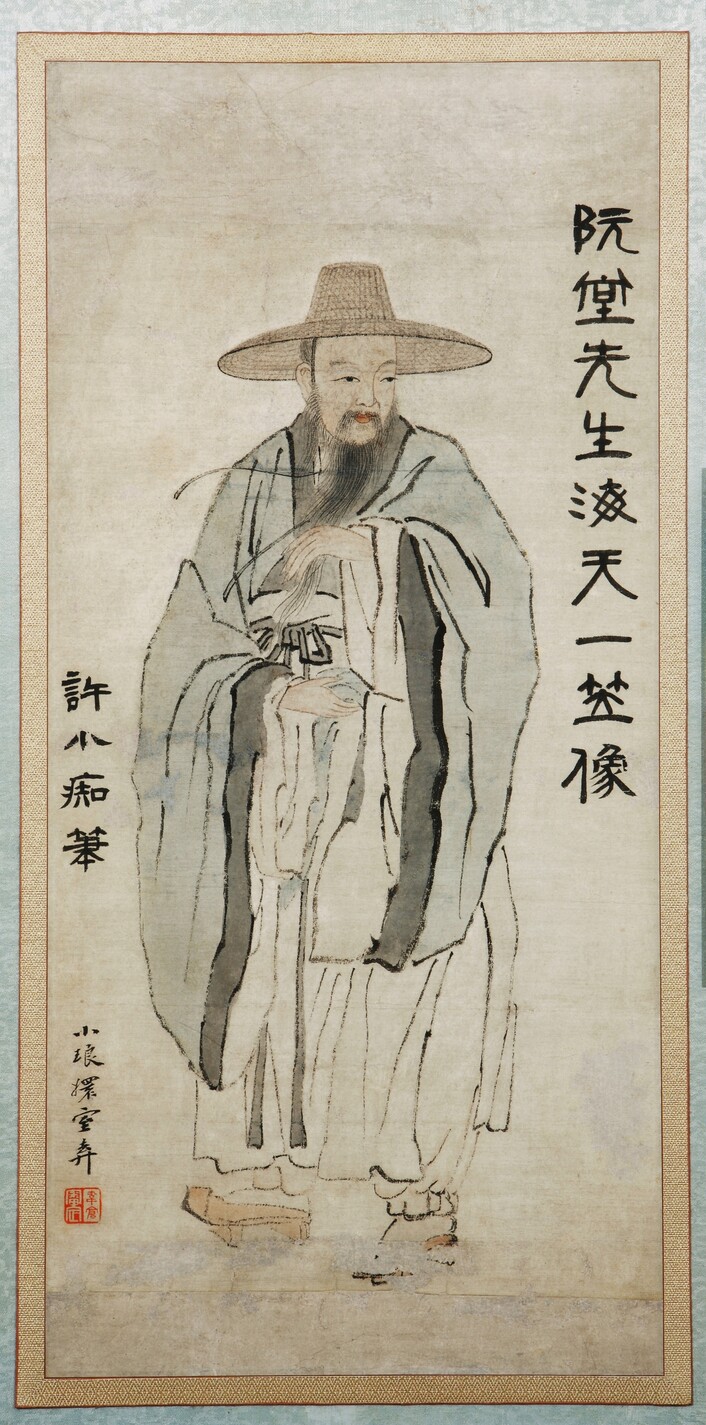 阮堂先生海天一笠像
許小痴筆
小瑯環室弆